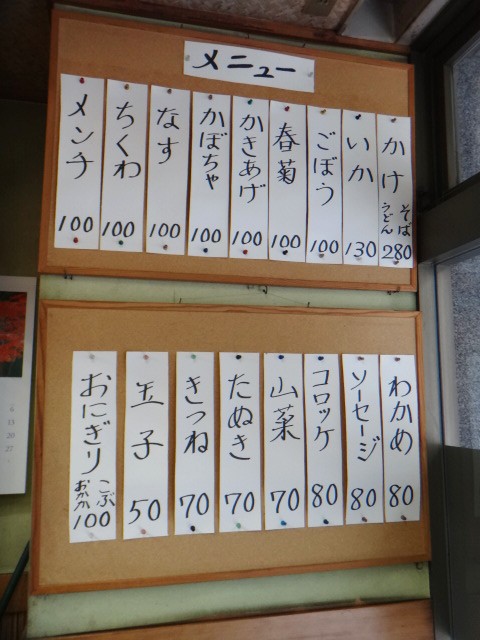 メニュー
かけ そば うどん 280
いか 130
ごぼう 100
春菊 100
かきあげ 100
かぼちゃ 100
なす 100
ちくわ 100
メンチ 100
わかめ 80
ソーセージ 80
コロッケ 80
山菜 70
たぬき 70
きつね 70
玉子 50
おにぎり こぶ おかか 100
13
20
27